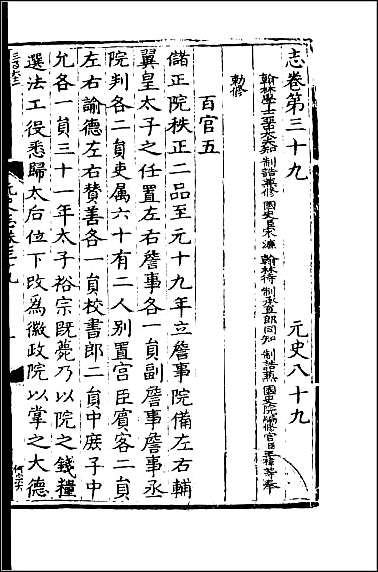 志卷第三十九 元史八十九
翰林學士亞中大夫知 制誥兼修 國史臣宋濂 翰林待 制承直郎同知 制誥兼 國史院編修官臣王禕等奉
勅修
百官五
儲正院秩正二品至元十九年立詹事院備左右輔
翼皇太子之任置左右詹事各一員副詹事詹事丞
院判各二員吏属六十有二人别置宫臣賓客二員
左右諭德左右賛善各一員校書郎二員中庶子中
允各一員三十一年太子裕宗既薨乃以院之錢糧
選法工役悉歸太后位下改為徽政院以掌之大德